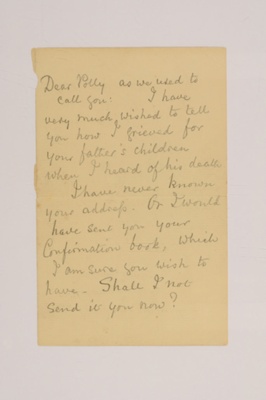 Dear Polly as we used to
call you: I have
very much wished to tell
you how I grieved for
your father's children
when I heard of his death
I have never known
your address. Or I would
have sent you your
Confirmation book, which
I am sure you wish to
have. Shall I not
send it you now?